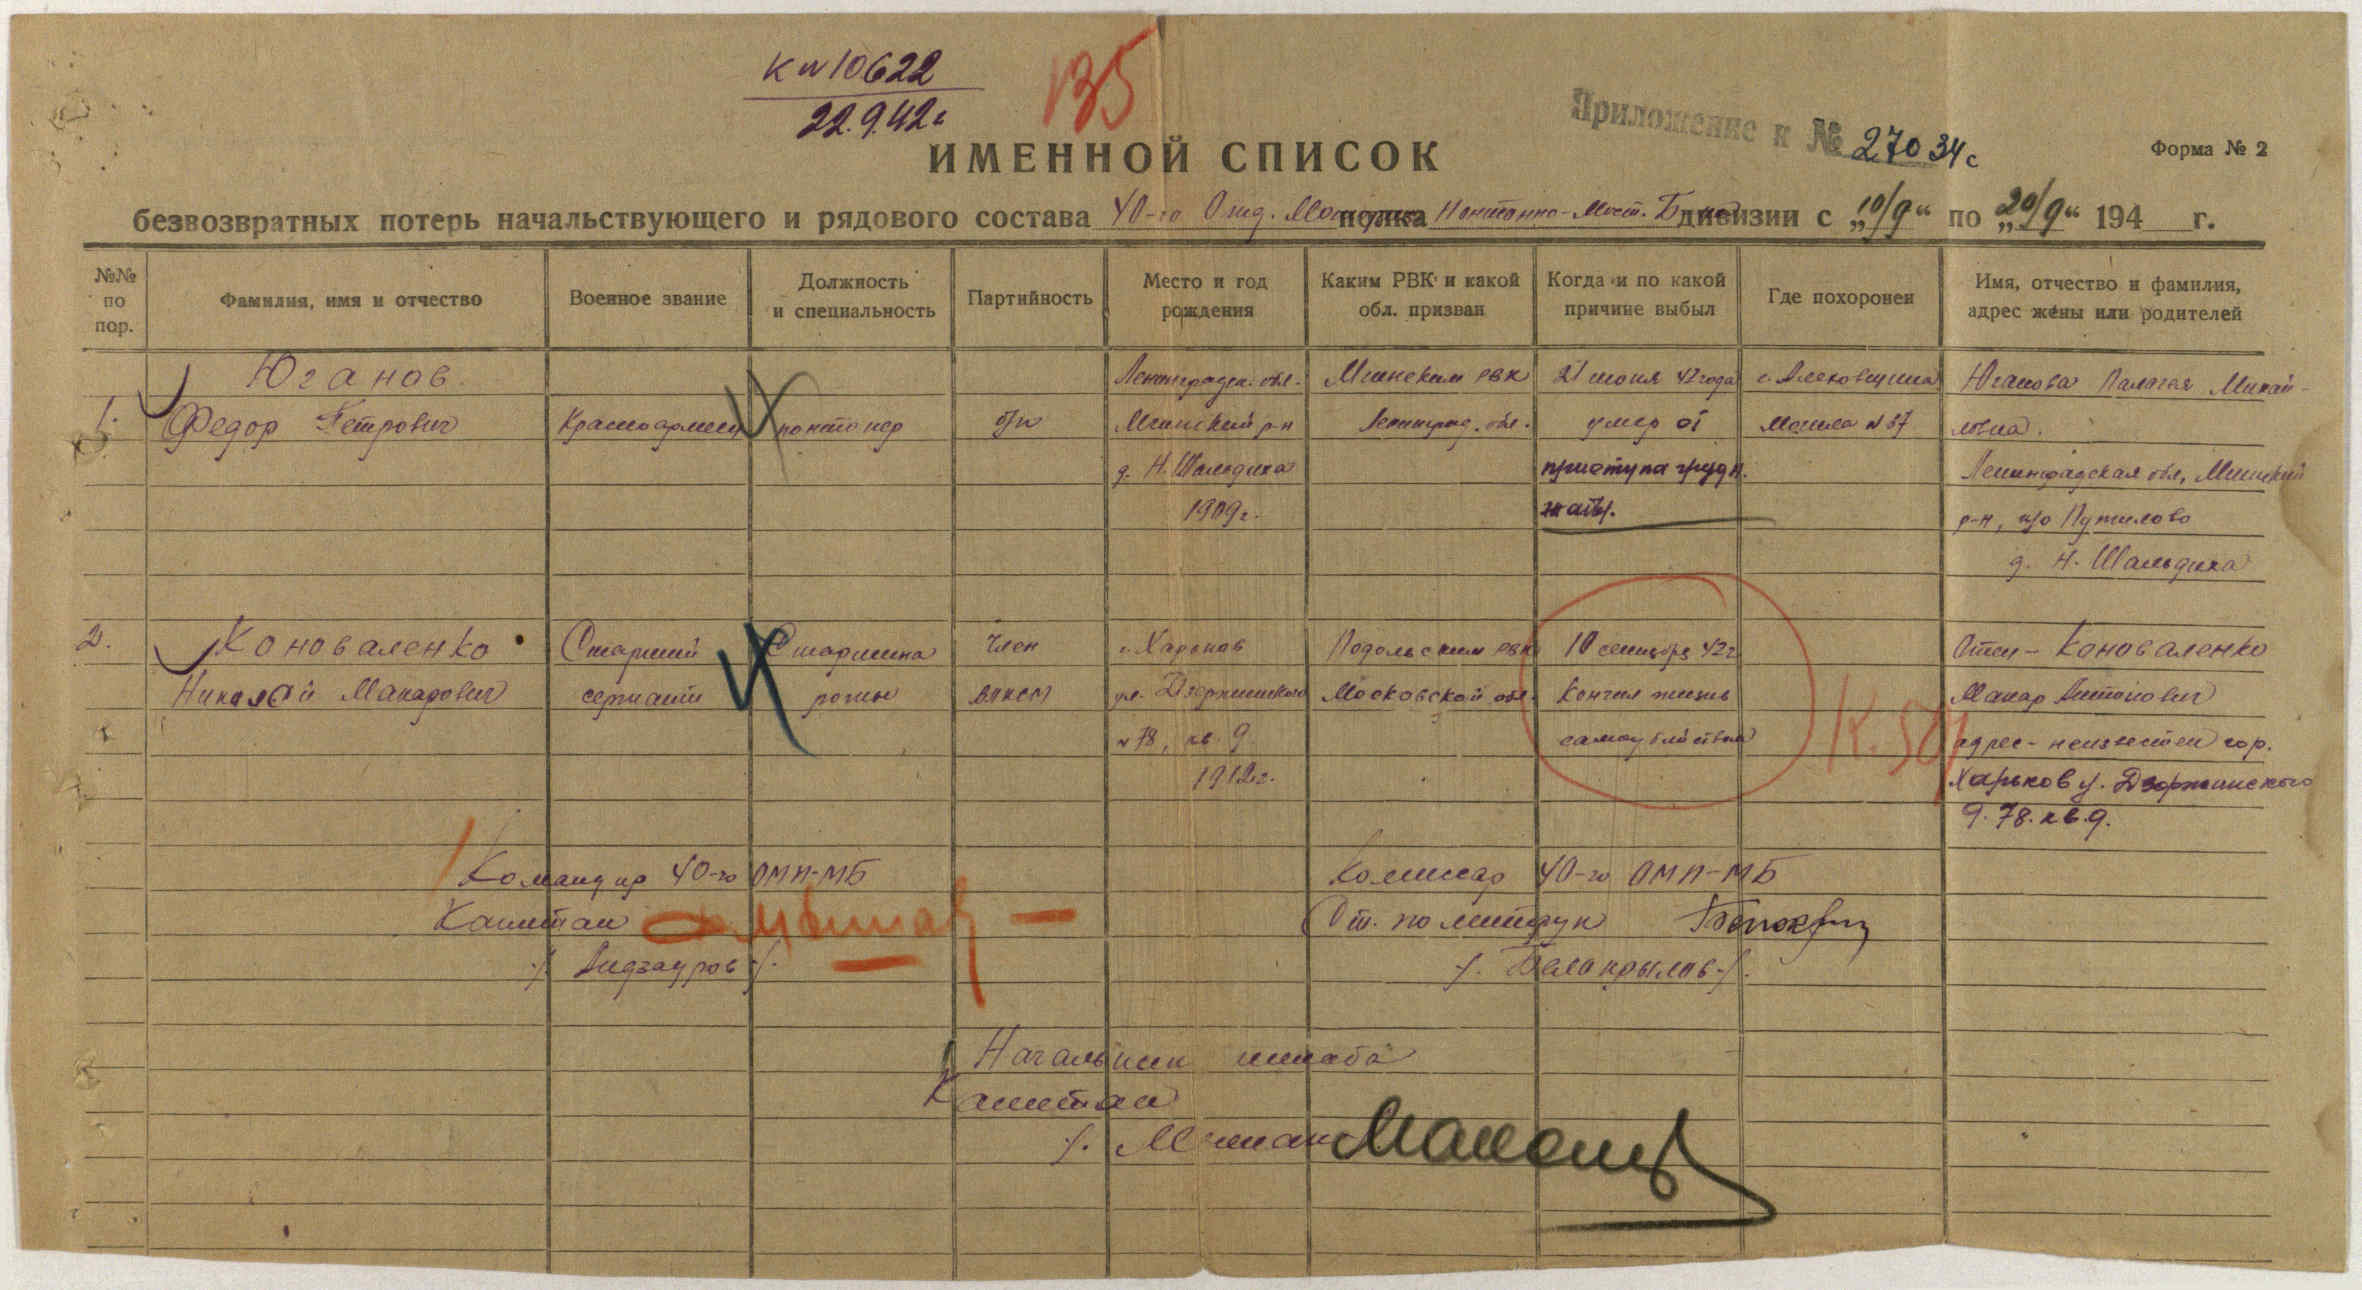 К № 10622
22.9.42г
135
Приложение к № 27034с
Форма № 2
ИМЕННОЙ СПИСОК
безвозвратных потерь начальствующего и рядового состава 40-го Отд. полка Понтонно-Мост. дивизии с „10/9“ по „20/9“ 194 г.
№№ по пор.
Фамилия, имя и отчество
Военное звание
Должность и специальность
Партийность
Место и год рождения
Каким РВК и какой обл. призван
Когда и по какой причине выбыл
Где похоронен
Имя, отчество и фамилия, адрес жены или родителей
Юганов Ленинградск. обл. Мгинским РВК 21 июня 42 года с. Алеховщина Юганова Пелагея Михай-
1. Федор Петрович Красноармеец понтонер б/п Мгинский р-н Ленинград. обл. умер от Могила № 37 ловна.
д. Н. Шальдиха приступа грудн. Ленинградская обл, Мгинский
1909г. жабы. р-н, п/о Путилово
д. Н. Шальдиха
2. Коноваленко Старший Старшина Член г. Харьков Подольским РВК 10 сентября 42г Отец - Коноваленко
Николай Макарович сержант роты ВЛКСМ ул. Дзержинского Московской обл. Кончил жизнь Макар Антонович
№ 78, кв. 9 самоубийством адрес - неизвестен гор.
1912г. Харьков у. Дзержинского
д. 78. кв. 9.
Командир 40-го ОМП-МБ Комиссар 40-го ОМП-МБ
Капитан Ст. политрук
/. Андзауров /. /. Белокрылов /.
Начальник штаба
Капитан